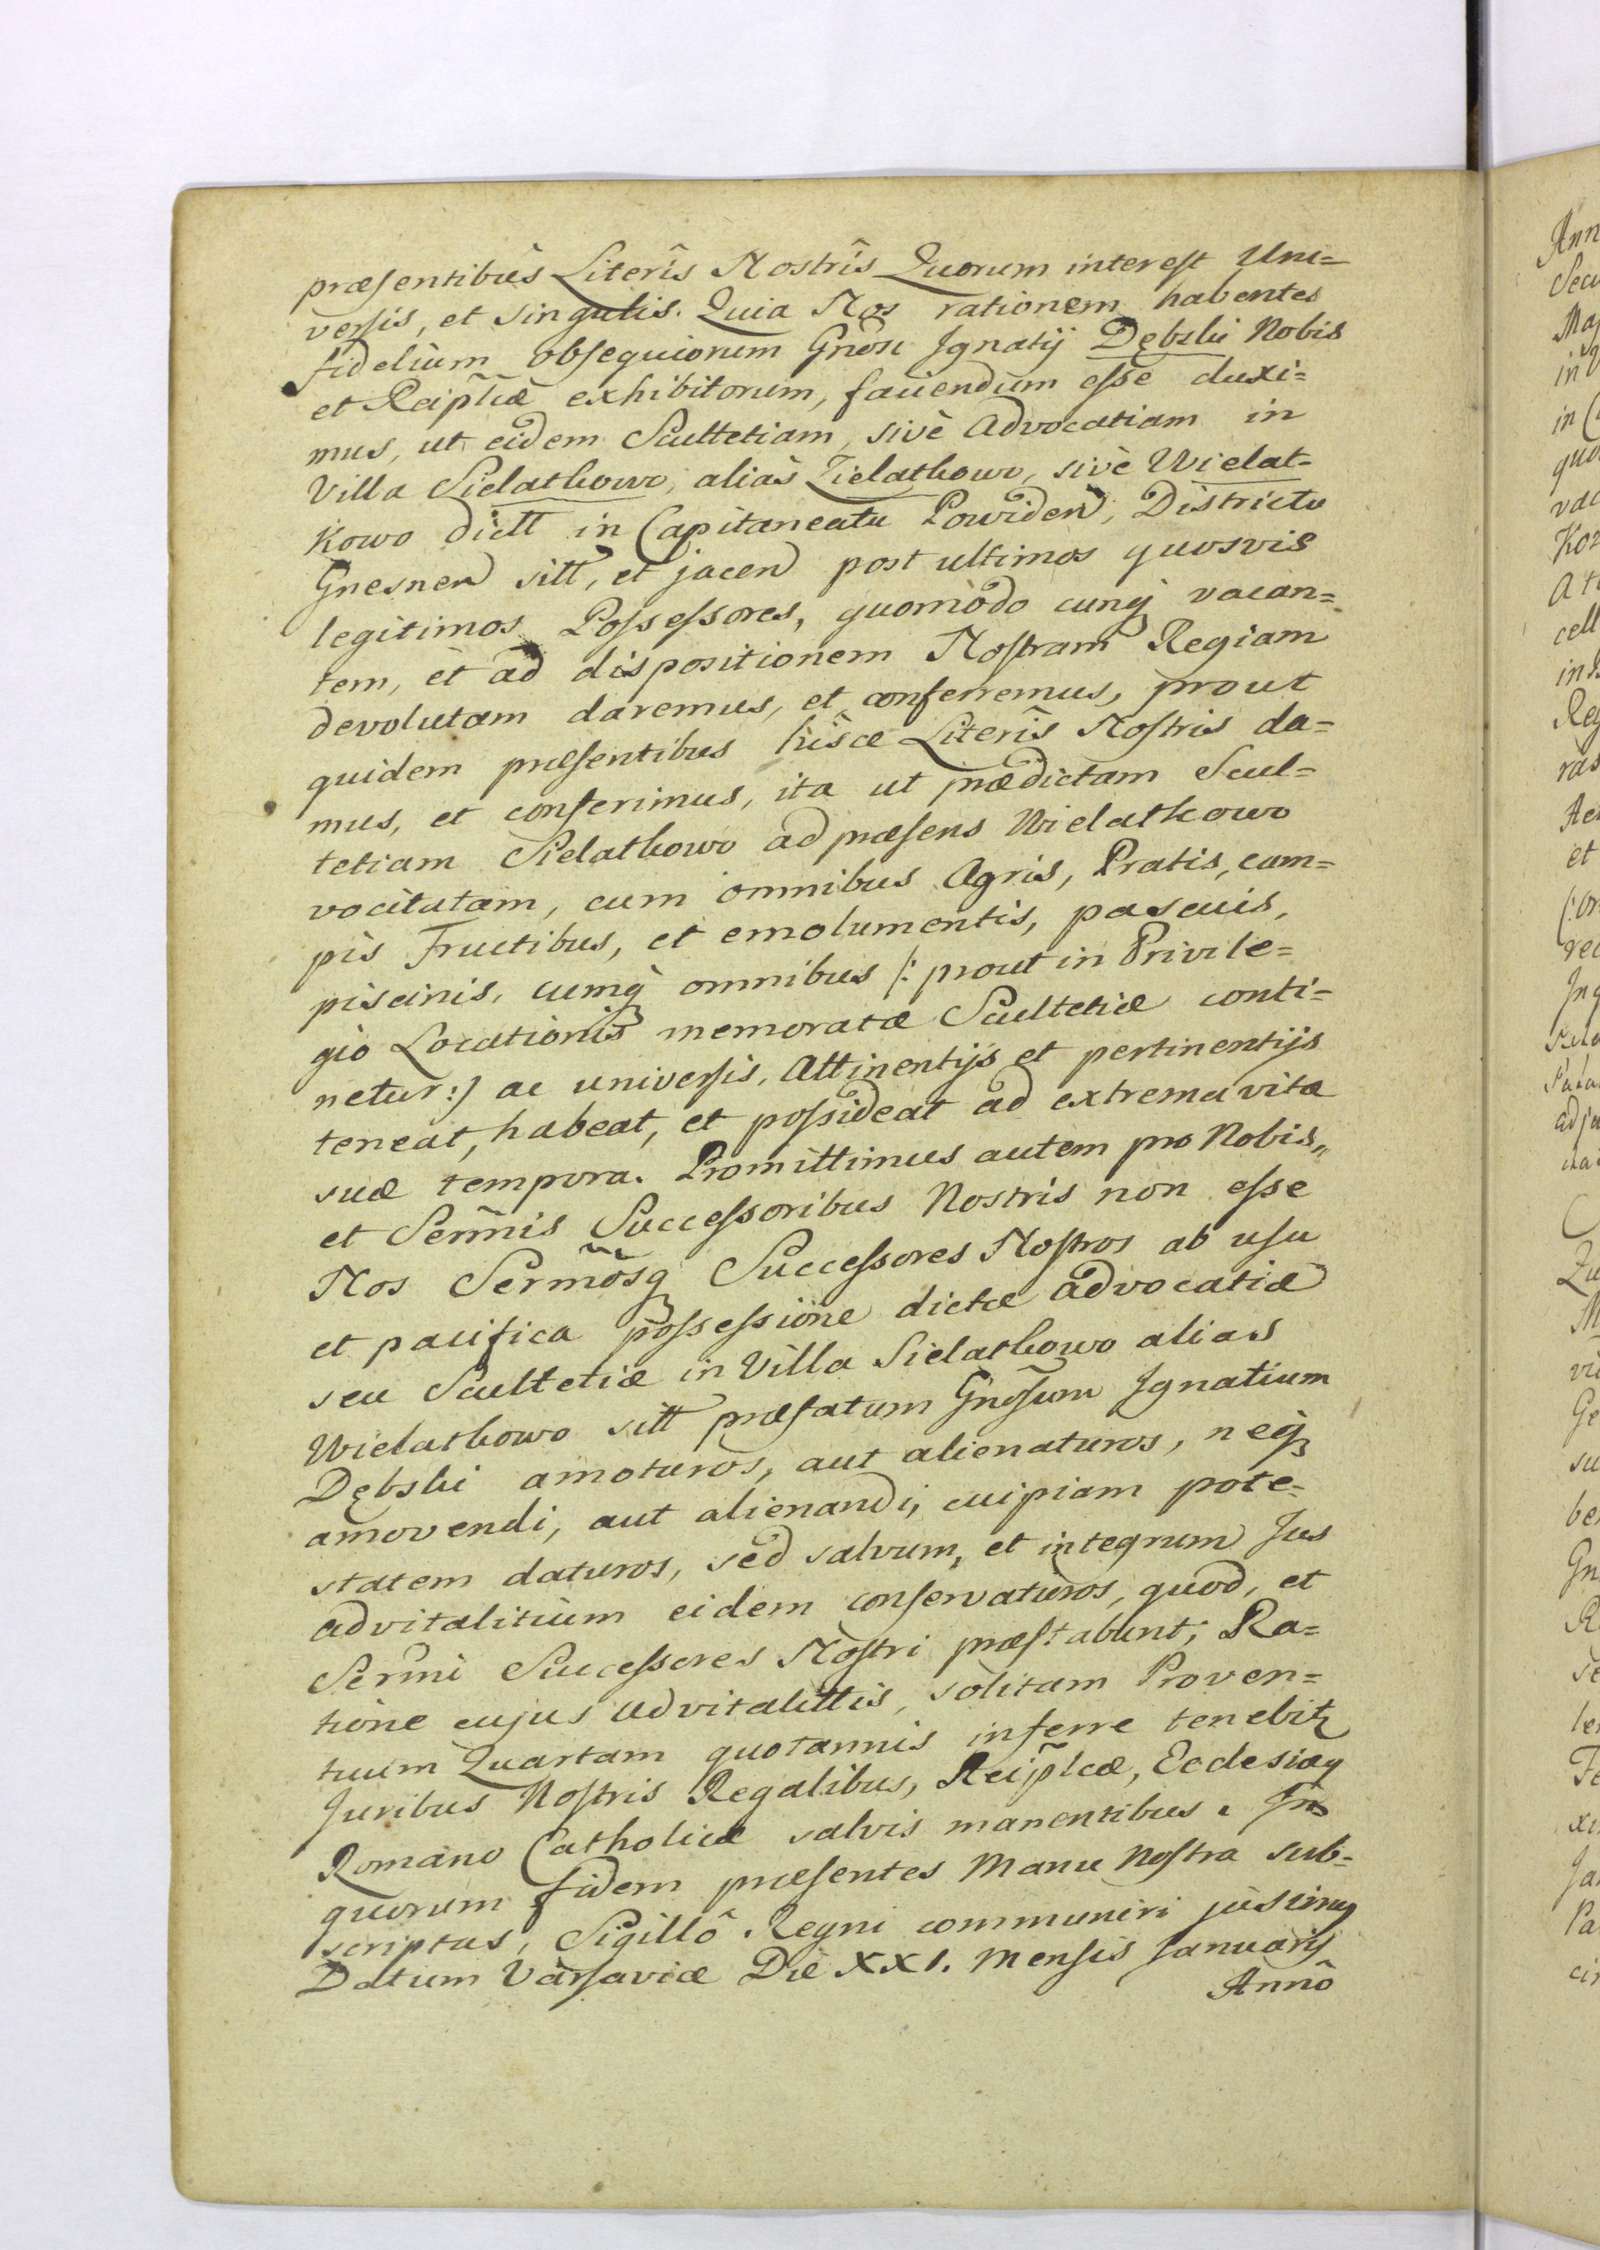 præsentibùs Literîs Nostrîs Quorum interest Uni=
versis, et singulis. Quia Nos rationem habentes
fidelium obsequiorum Gnosi Ignatij Dębski Nobis
et Reiplicæ exhibitorum, favendum esse duxi=
mus, ut eidem Scultetiam, sivè Advocatiam in
Villa Sielatkowo, aliàs Zielatkowo, sivè Wielat=
kowo dictt in Capitaneatu Powiden, Districtu
Gnesnen sitt, et jacen post ultimos quosvis
legitimos Possessores, quomòdo cunq vacan=
tem, èt ad dispositionem Nostram Regiam
devolutam daremus, et conferremus, prout
quidem præsentibus hisce Literîs Nostris da=
mus, et conferimus, ita ut prædictam Scul=
tetiam Sielatkowo ad præsens Wielatkowo
vocitatam, cum omnibus Agris, Pratis, cam=
pis Fructibus, et emolumentis, pascuis,
piscinis, cumq omnibus /: prout in Privile=
gio Locationis memoratæ Scultetiæ conti=
netur :/ ac universis, Attinentijs et pertinentijs
teneat, habeat, et possideat ad extrema vitæ
suæ tempora. Promittimus autem pro Nobis,,
et Serm̃is Successoribus Nostris nòn esse
Nos Serm̃osq Successores Nostros ab usu
et pacifica possessione dictæ advocatiæ
seu Scultetiæ in Villa Sielatkowo alias
Wielatkowo sitt præfatum Gnosum Ignatium
Dębski amoturos, aut alienaturos, neq
amovendi, aut alienandi, cuipiam pote=
statem daturos, sed salvum, et integrum Jus
advitalitium eidem conservaturos, quod, et
Serm̃i Successores Nostri præstabunt; Ra=
tiòne cujus advitalittis, solitam Proven=
tuum Quartam quotannis inferre tenebitr
Juribus Nostris Regalibus, Reip̃lcæ, Ecclesiæq
Romano Catholicæ salvis manentibus. In
quorum fidem præsentes Manu Nostra sub=
scriptas, Sigillô Regni communiri jussimus
Datum Varsaviæ Die XXI. Mensis Januarij
Annô